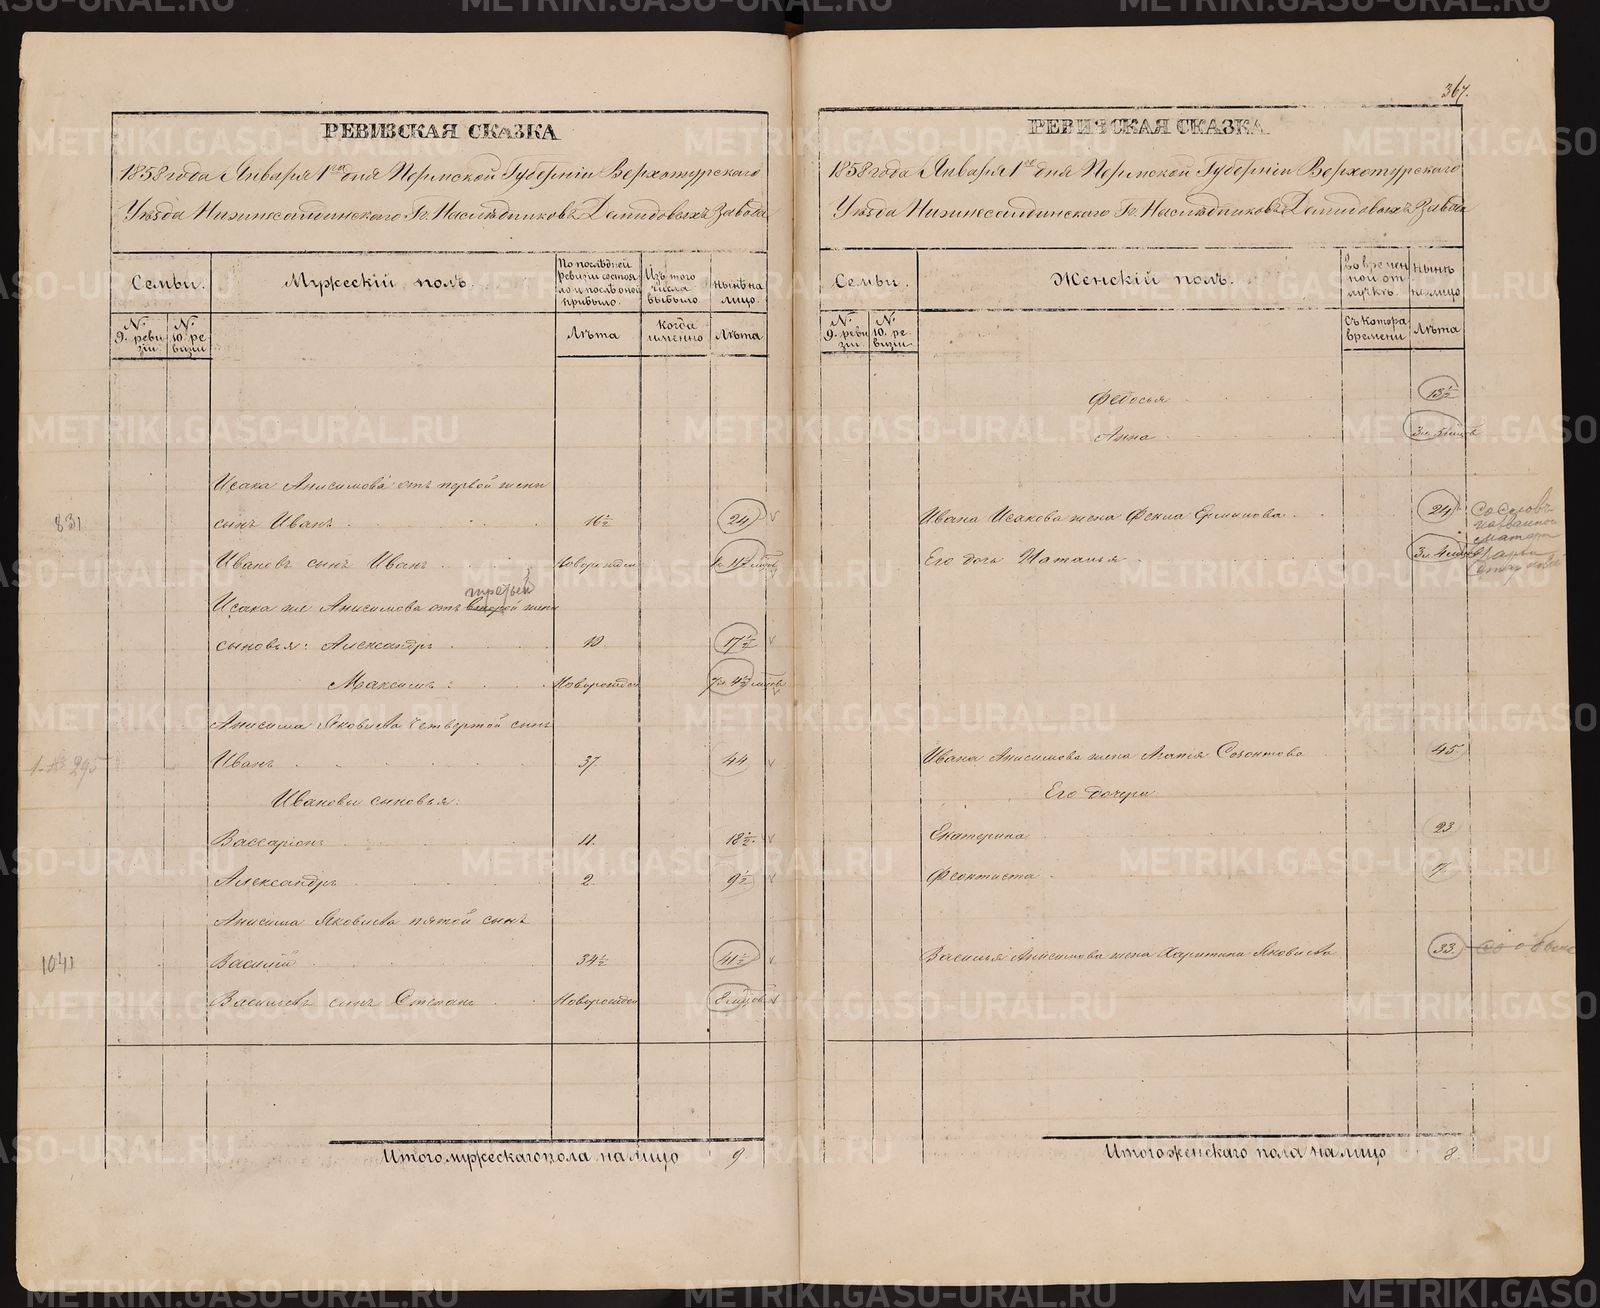 367.
РЕВИЗСКАЯ СКАЗКА
1858 года Января 1го дня Пермской Губерніи Верхотурскаго
Уѣзда Нижнесалдинскаго Гг. Наслѣдниковъ Демидовыхъ Завода
Семьи.
Мужескій полъ.
По послѣдней ревизіи состояло и послѣ оной прибыло.
Изъ того числа выбыло
нынѣ на лицо.
№ 9. ревизіи
№ 10. ревизіи
Лѣта
когда именно
Лѣта
Исака Анисимова отъ первой жены
831 сынъ Иванъ 16½ 24
Ивановъ сынъ Иванъ Новорожден
третьей
Исака же Анисимова отъ второй жены
сыновья: Александръ 10. 17½
Максимъ Новорожден
Анисима Яковлева четвертой сынъ
№ 295 Иванъ 37 44
Ивановы сыновья:
Вассаріонъ 11. 18½.
Александръ 2 9½
Анисима Яковлева пятой сынъ
1041 Василій 34½ 41½
Васильевъ сынъ Степанъ Новорожден
Итого мужескаго пола на лицо 9
РЕВИЗСКАЯ СКАЗКА
1858 года Января 1го дня Пермской Губерніи Верхотурскаго
Уѣзда Нижнесалдинскаго Гг. Наслѣдниковъ Демидовыхъ Завода
Семьи.
Женскій полъ.
Во временной отлучкѣ.
нынѣ на лицо
№ 9. ревизіи
№ 10. ревизіи
Съ котора времени
Лѣта
Федосья 13½
Анна
Ивана Исакова жена Фекла 24
Его дочь Наталья
Ивана Анисимова жена Агапія Созонтова 45
Его дочери
Екатерина 23
Феоктиста 17.
Василья Анисимова жена Харитина Яковлева 33
Итого женскаго пола на лицо 8.
METRIKI.GASO-URAL.RU